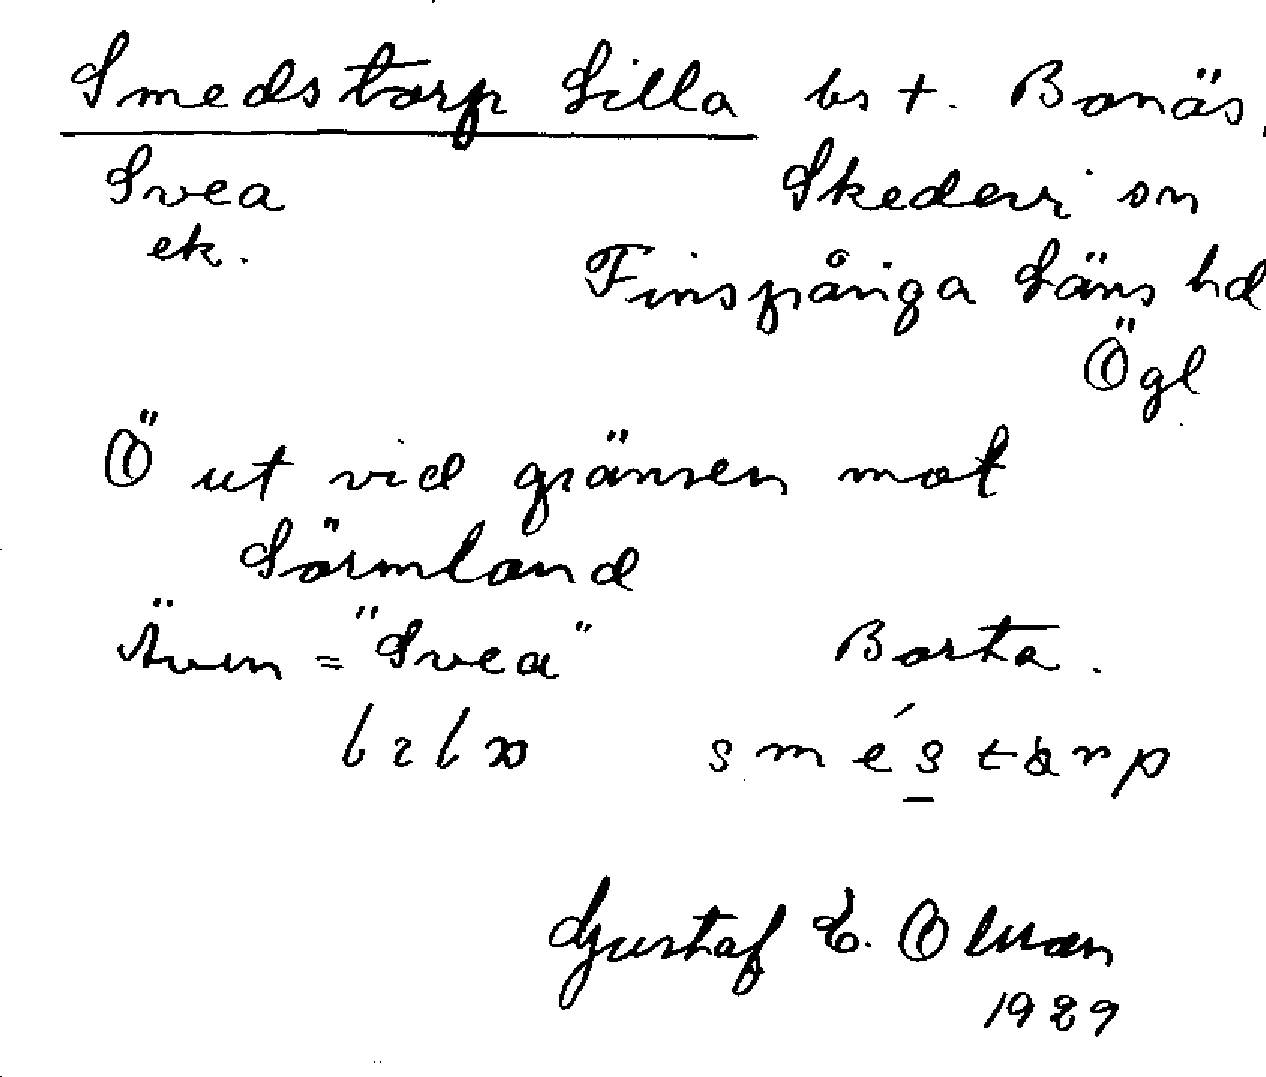 Smedstorp Lilla bs t. Bonäs,
Svea Skedevi sn
ek. Finspånga Läns hd
Ögl
Ö ut vid gränsen mot
Sörmland
Även = "Svea" Borta.
sméstàrp
Gustaf E. Olman
1929